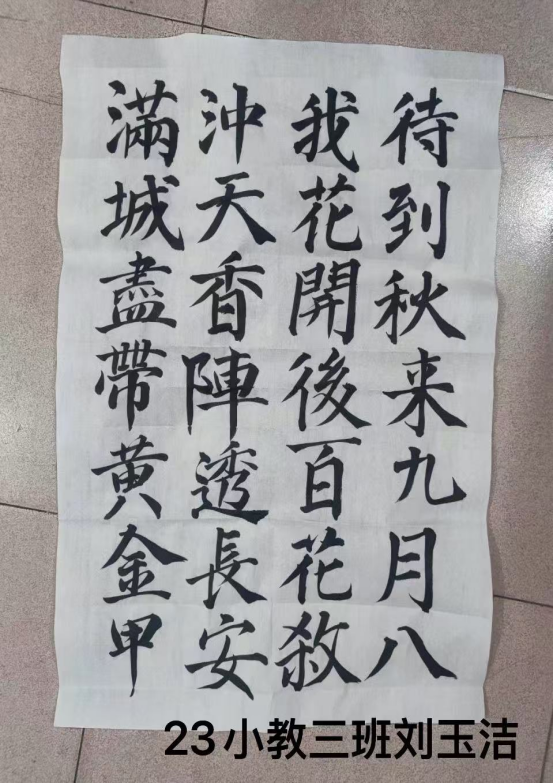 待到秋来九月八
我花開後百花殺
沖天香陣透長安
滿城盡帶黄金甲
23小教三班刘玉洁